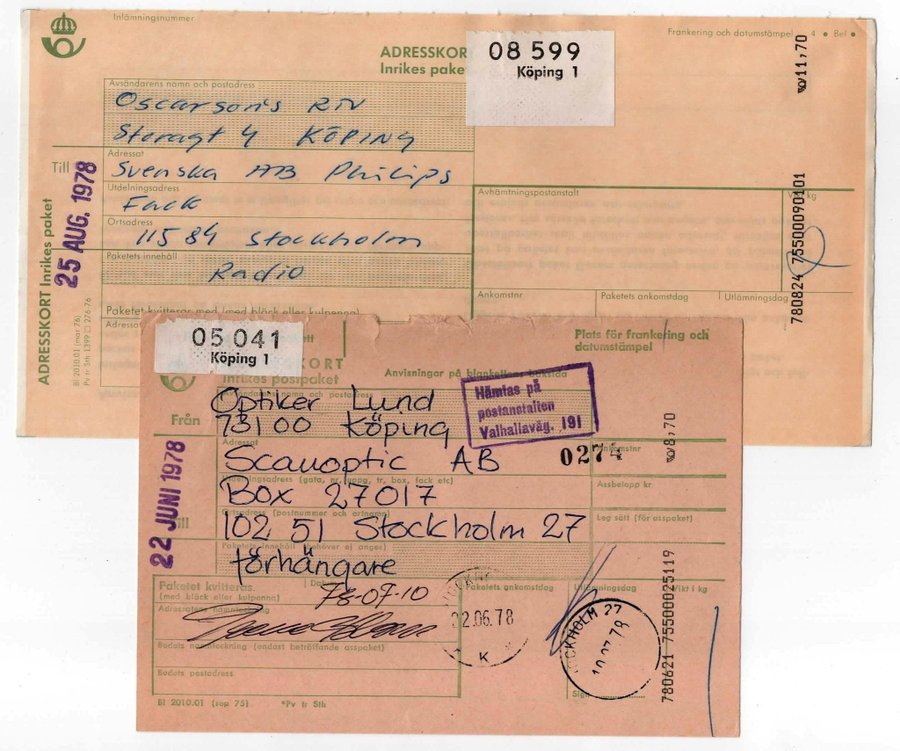 Inlämningsnummer
ADRESSKORT
Inrikes paket
08 599
Köping 1
Frankering och datumstämpel 4 • Bel •
11,70
Avsändarens namn och postadress
Oscarson's RTV
Storagt 4 KÖPING
Till
Adressat
Svenska AB Philips
Utdelningsadress
Fack
Ortsadress
115 84 Stockholm
Paketets innehåll
Radio
25 AUG. 1978
ADRESSKORT Inrikes paket
Bl 2010.01 (mar 76)
Avhämtningspostanstalt
Vikt kg
780824 75500090101
Ankomstnr
Paketets ankomstdag
Utlämningsdag
Paketet kvitteras med (med bläck eller kulpenna)
05 041
Köping 1
ADRESSKORT
Inrikes postpaket
Anvisningar på blankettens baksida
Plats för frankering och
datumstämpel
Hämtas på
postanstalten
Valhallaväg. 191
Från
Optiker Lund
73100 Köping
0274
Ankomstnr
8,70
Adressat
Scanoptic AB
Utdelningsadress (gata, nr, uppg, tr, box, fack etc)
Assbelopp kr
Box 27017
Ortsadress (postnummer och ortnamn)
Leg sätt (för asspaket)
Till
102 51 Stockholm 27
Paketets innehåll (behöver ej anges)
förhängare
22 JUNI 1978
Paketet kvitteras
(med bläck eller kulpenna)
Datum
78-07-10
Paketets ankomstdag
Utlämningsdag
Vikt i kg
Adressatens namnteckning
22.06.78
K
STOCKHOLM 27
10.07.78
Bodets namnteckning (endast beträffande asspaket)
Bodets postadress
Sign
780621 75500025119
Bl 2010.01 (sep 75)
*Pv tr Sth